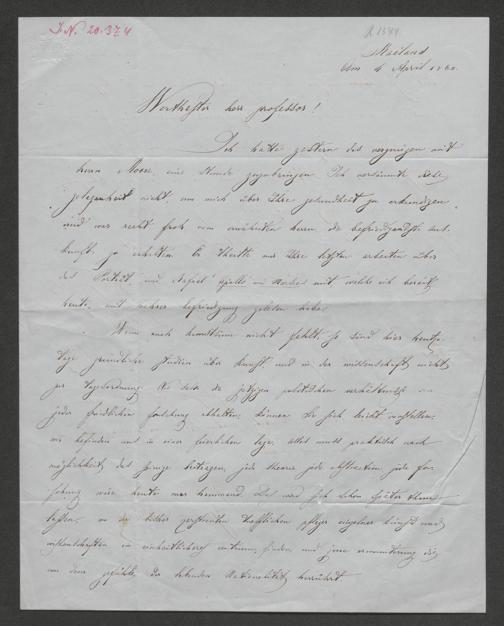 I.N. 20.374
Mailand
den 4 April 1860.
Werthester herr professor!
Ich hatte gestern das vergnügen mit
herrn Moser, eine stunde zuzubringen. Ich versäumte die
gelegenheit nicht, um mich über Ihre gesundheit zu erkundigen
und war recht froh vom erwähnten herrn die befriedigendste aus-
kunft zu erhalten. Er theilte mir Ihre letzten arbeiten über
das Porträt, und Rafael's Apollo und Marsias mit, welche ich bereits
heute, mit wahrer befriedigung gelesen habe.
Wenn auch kunstsinn nicht fehlt, so sind hier heutzu-
tage gründliche studien über kunst, und in der wissenschaft nicht
zur tagesordnung. die jetzigen politischen verhältnisse
jeder friedlichen forschung abhalten, können Sie sich leicht vorstellen;
wir befinden uns in einer feierlichen lage. Alles muss praktisch nach
möglichkeit das seinige beitragen, jede theorie jede abstraction, jede for-
schung wäre heute nur hemmend. Das wird sich schon später
wo die bisher zerstreuten pfleger einzelner künste und
wissenschaften ein einheitliches centrum, finden und jene ermunterung die
von dem gefühle, der lebenden Nationalität herrührt.